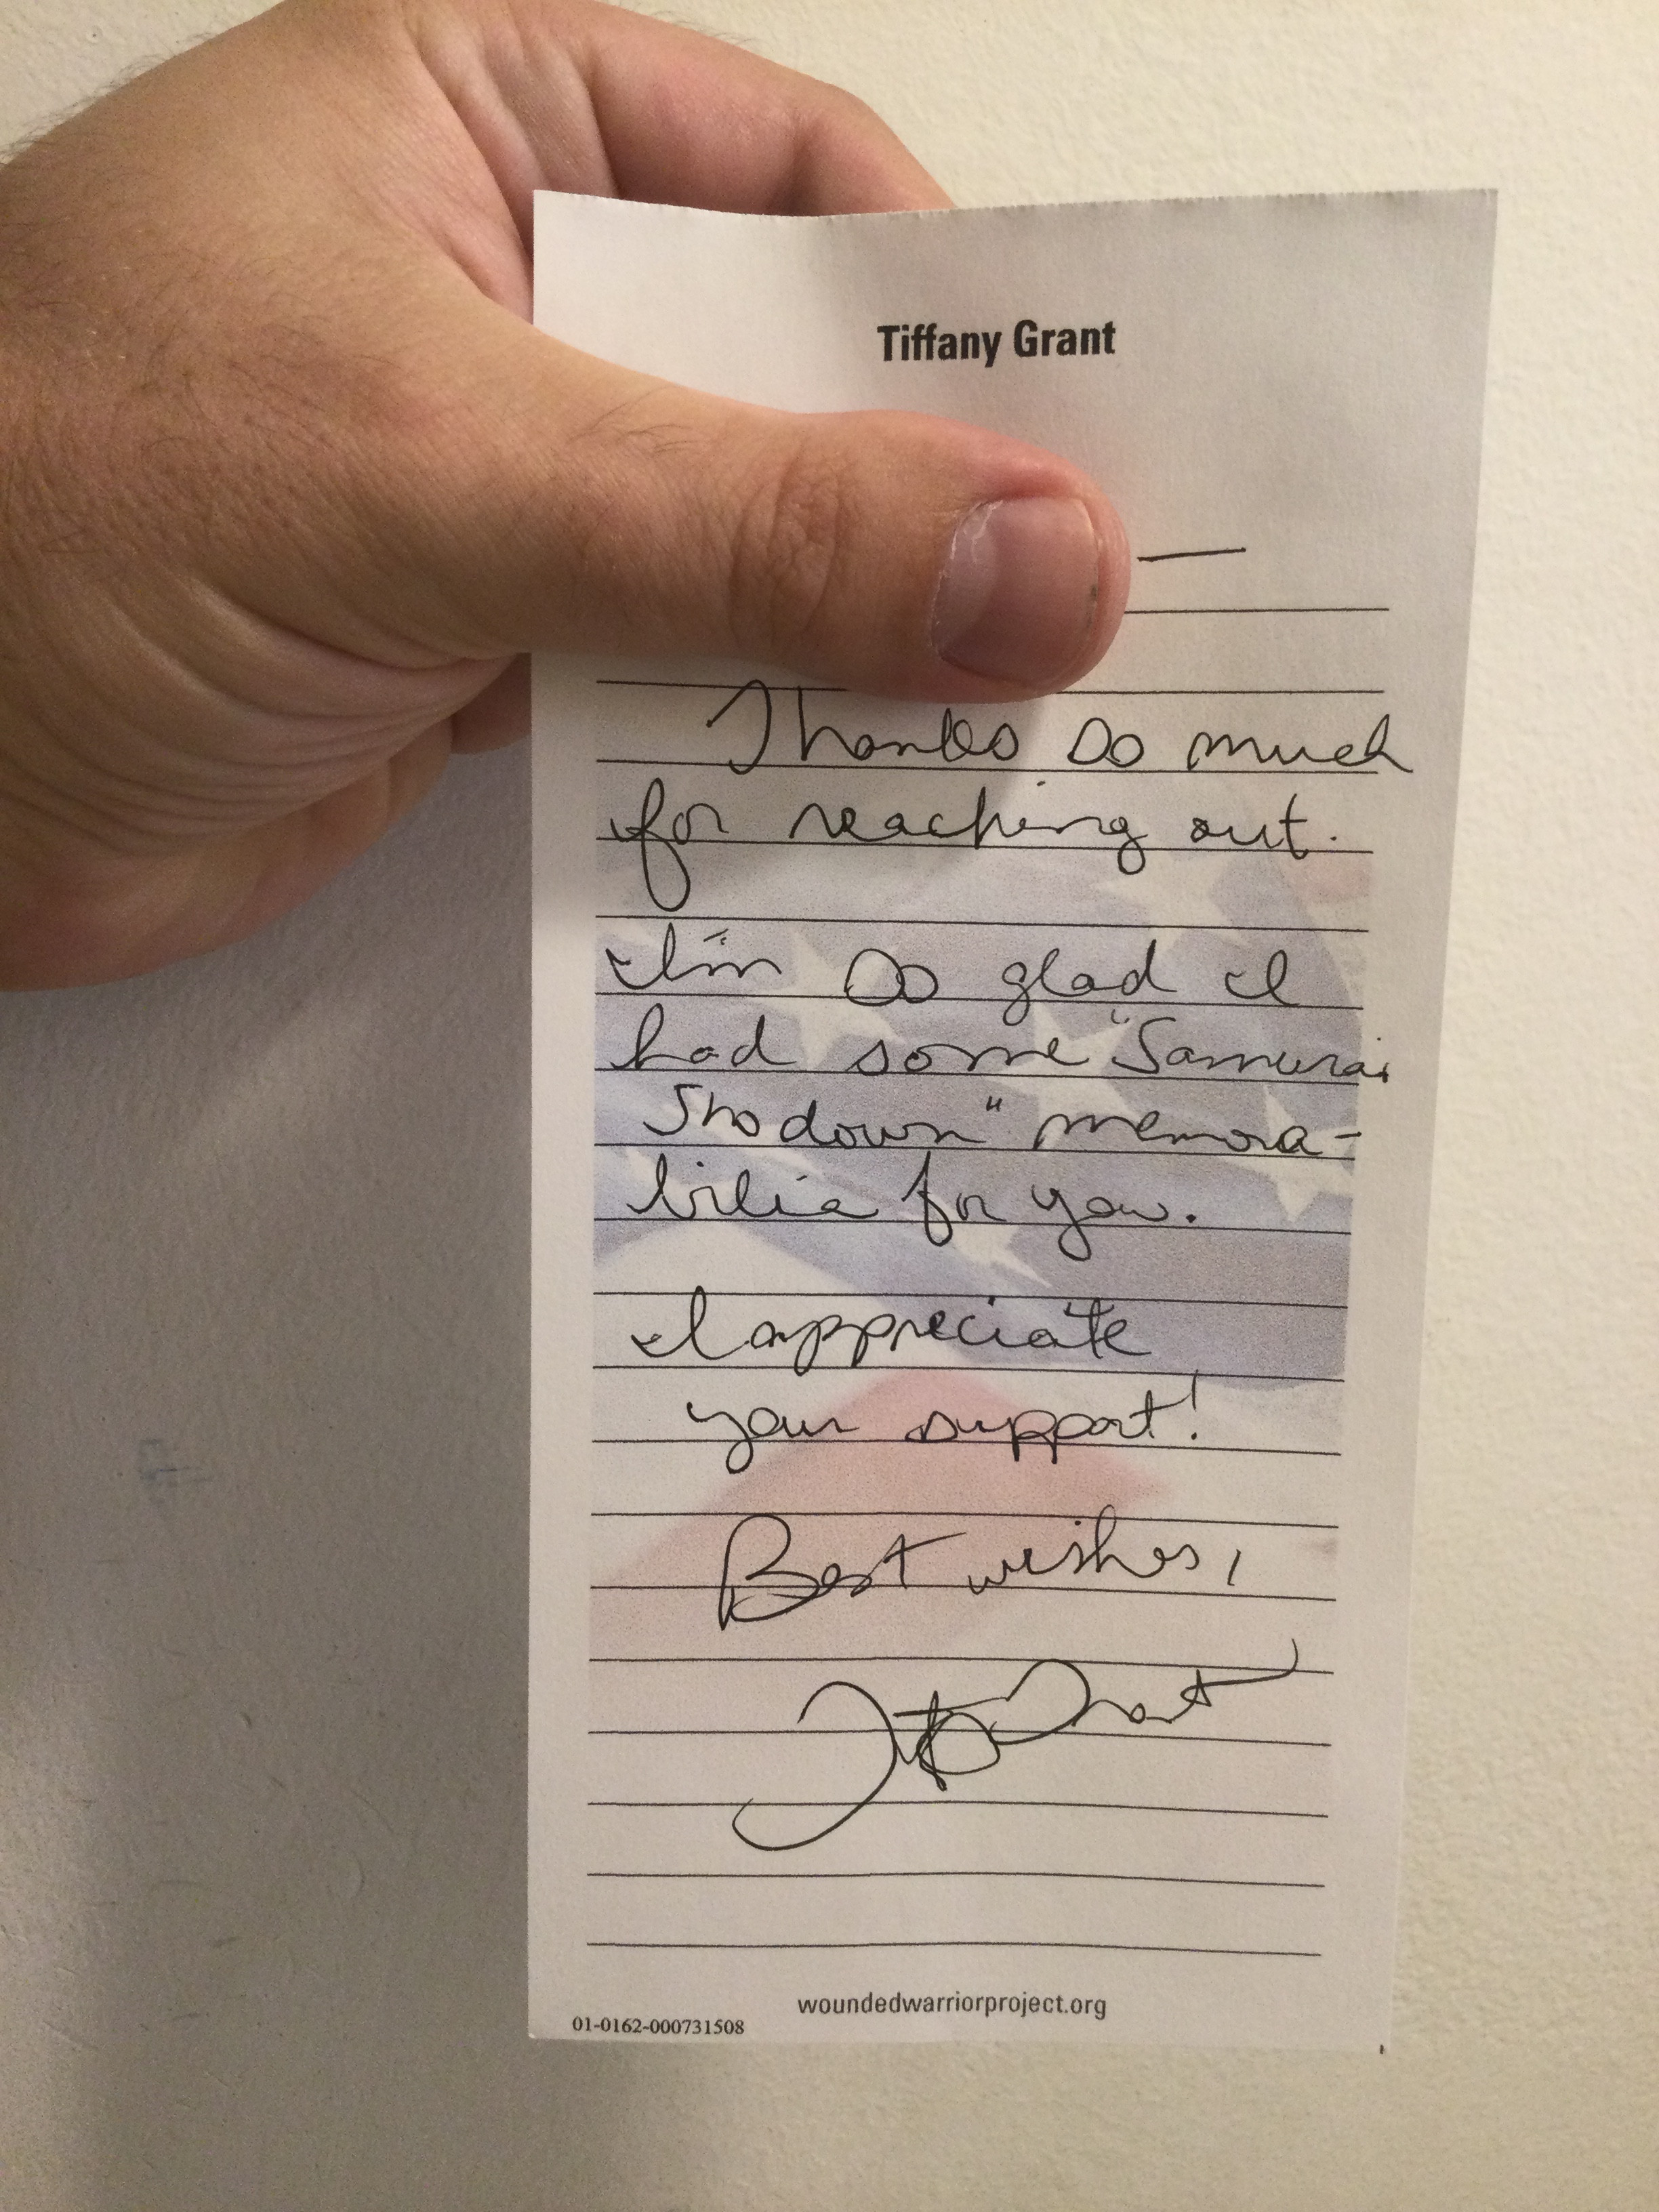 Tiffany Grant
—
Thanks so much
for reaching out.
I'm so glad I
had some "Samurai
Shodown" memora-
bilia for you.
I appreciate
your support!
Best wishes,
Tiffany Grant
woundedwarriorproject.org
01-0162-000731508